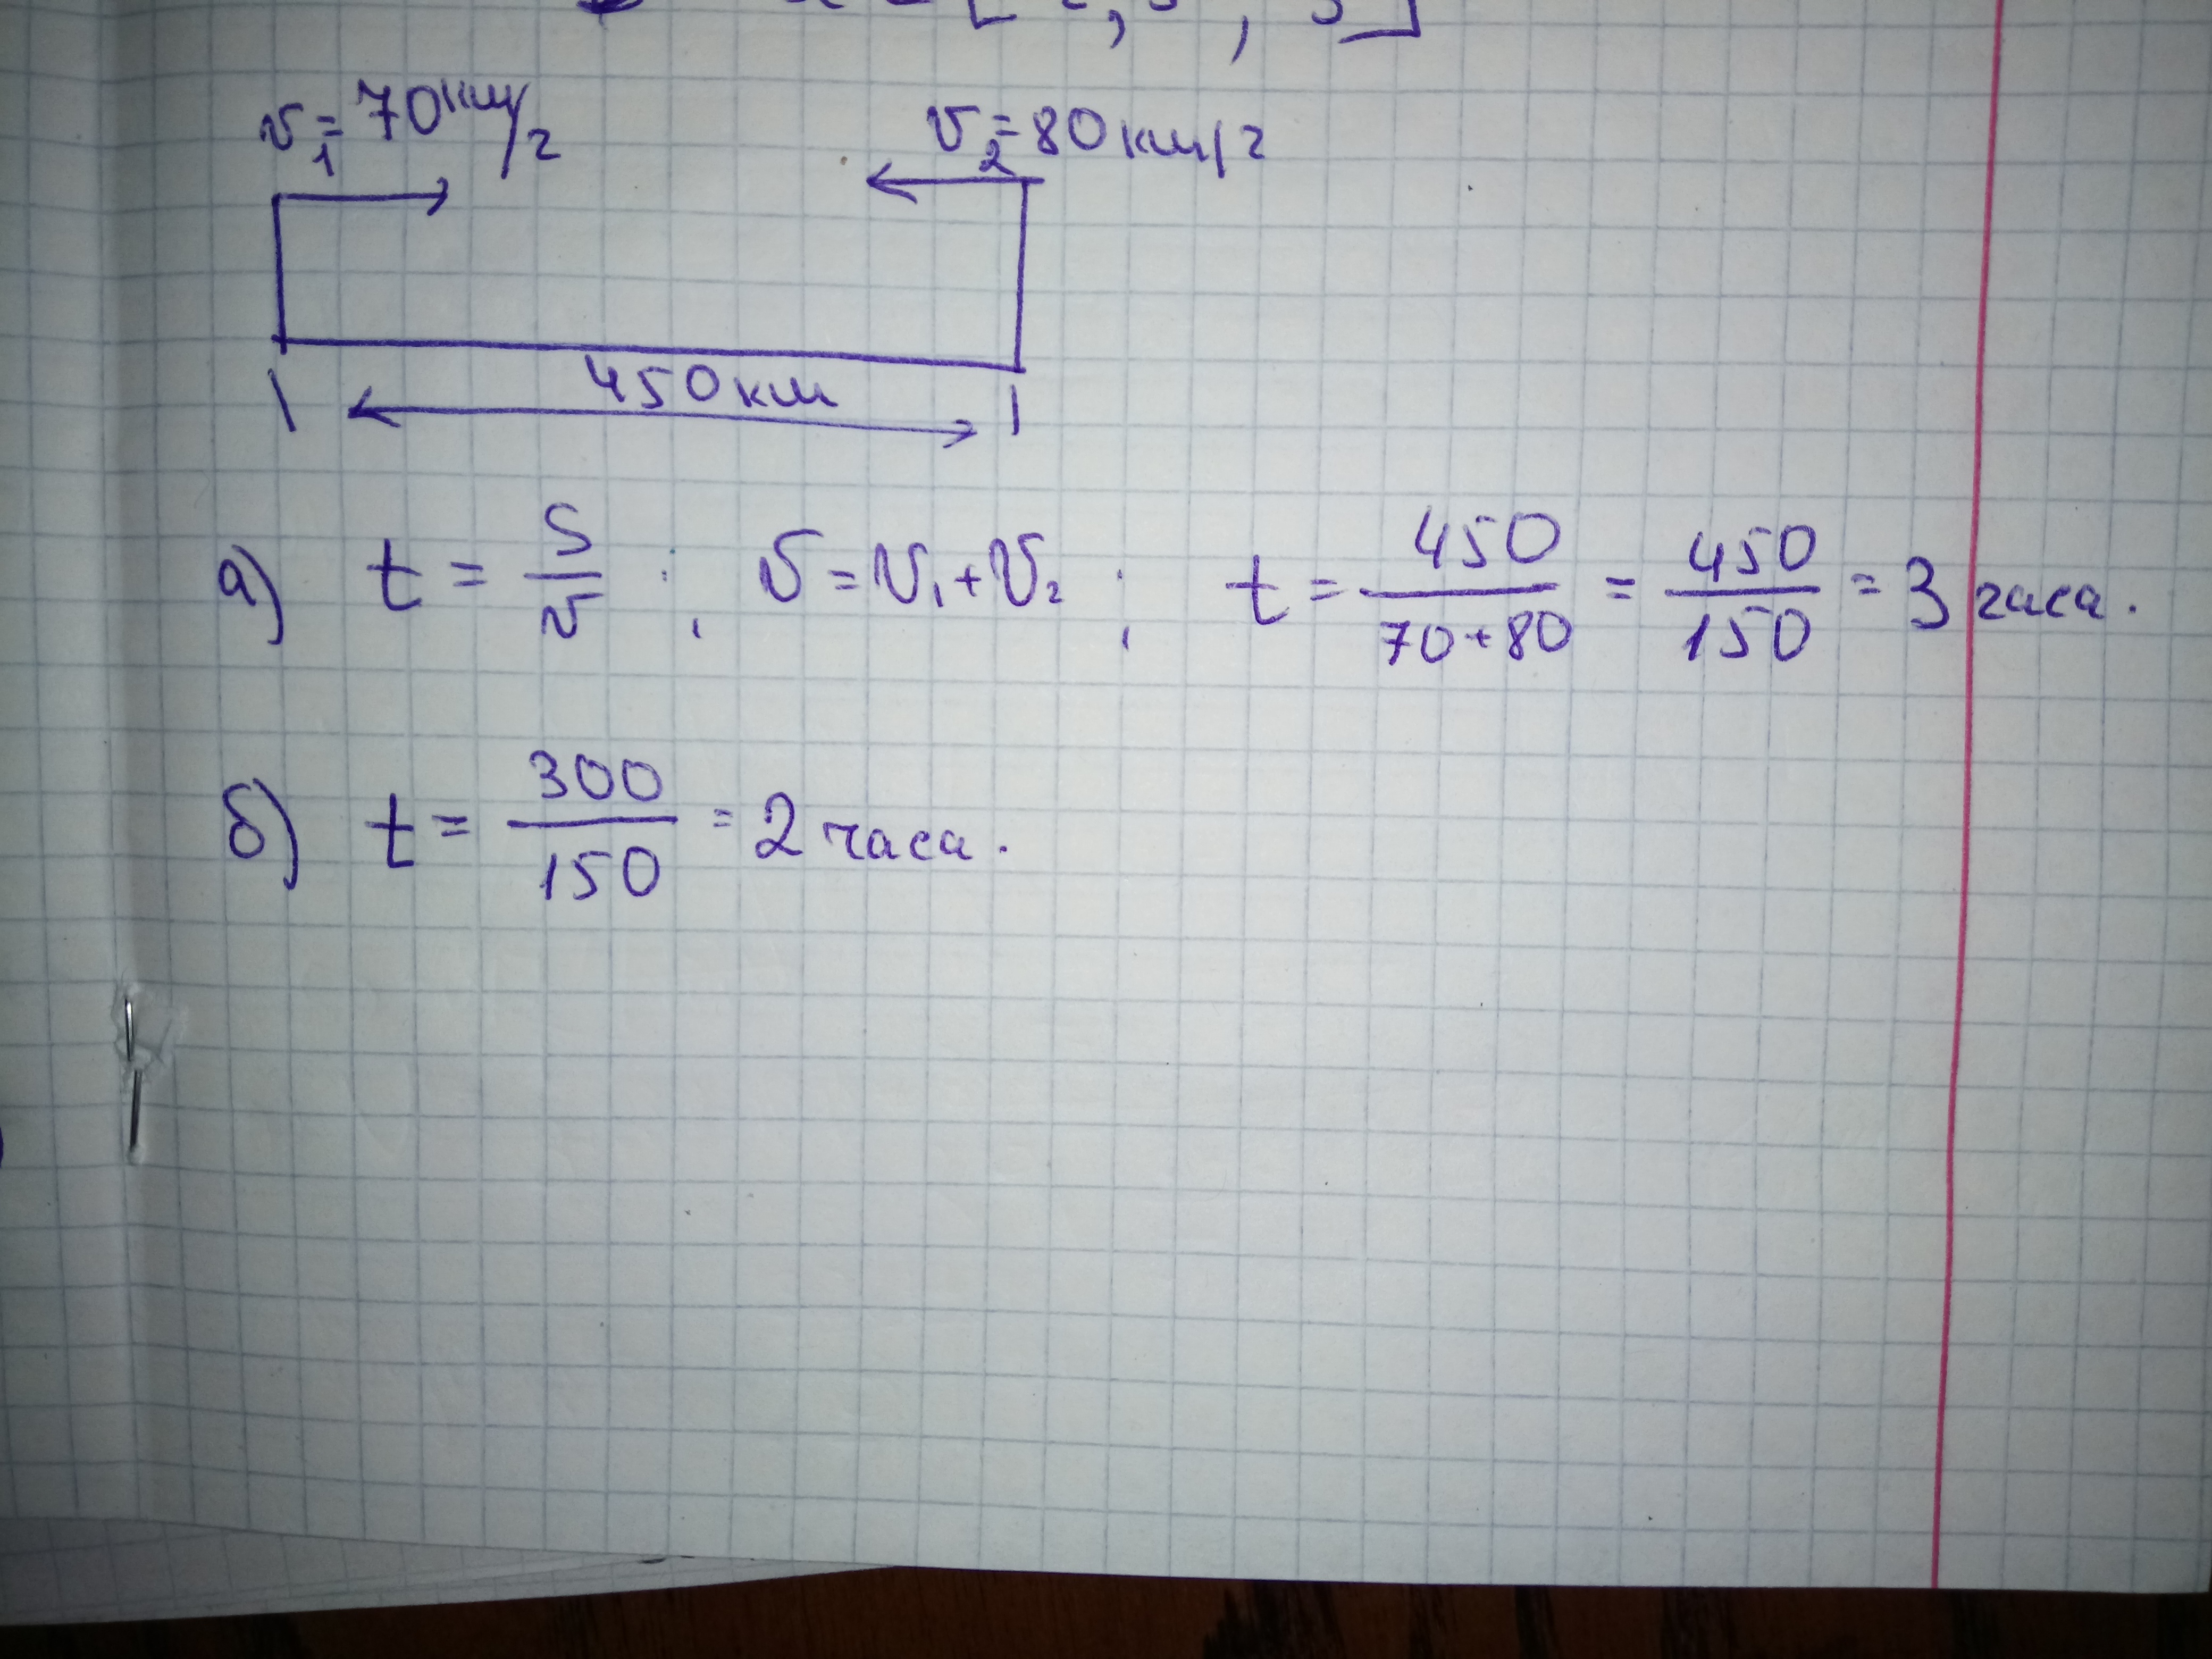 v₁ = 70 км/ч v₂ = 80 км/ч
450 км
а) t = S/v ; v = v₁ + v₂ ; t = 450/(70+80) = 450/150 = 3 часа.
б) t = 300/150 = 2 часа.